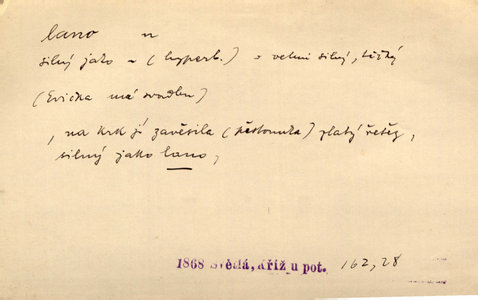 lano n
silný jako ~ (hyperb.) = velmi silný, těžký
(Evička má svadbu)
, na krk jí zavěsila (pěstounka) zlatý řetěz,
silný jako lano,
1868 Světlá, Kříž u pot. 162,28